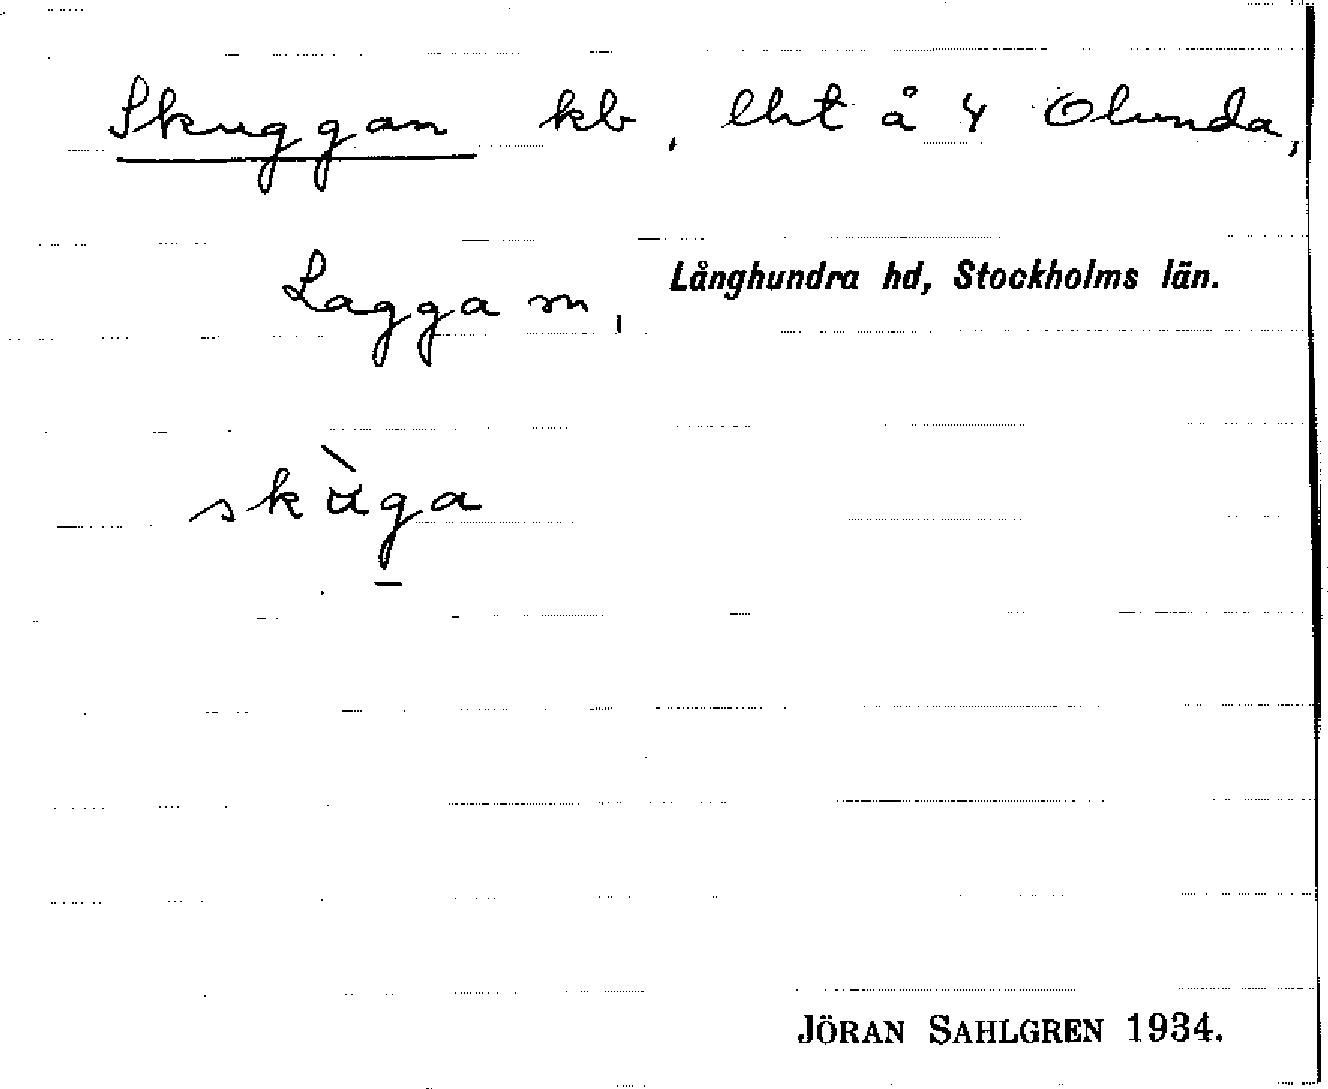 Skuggan kb, lht å 4 Olunda,
Lagga sn, Långhundra hd, Stockholms län.
skùga
JÖRAN SAHLGREN 1934.